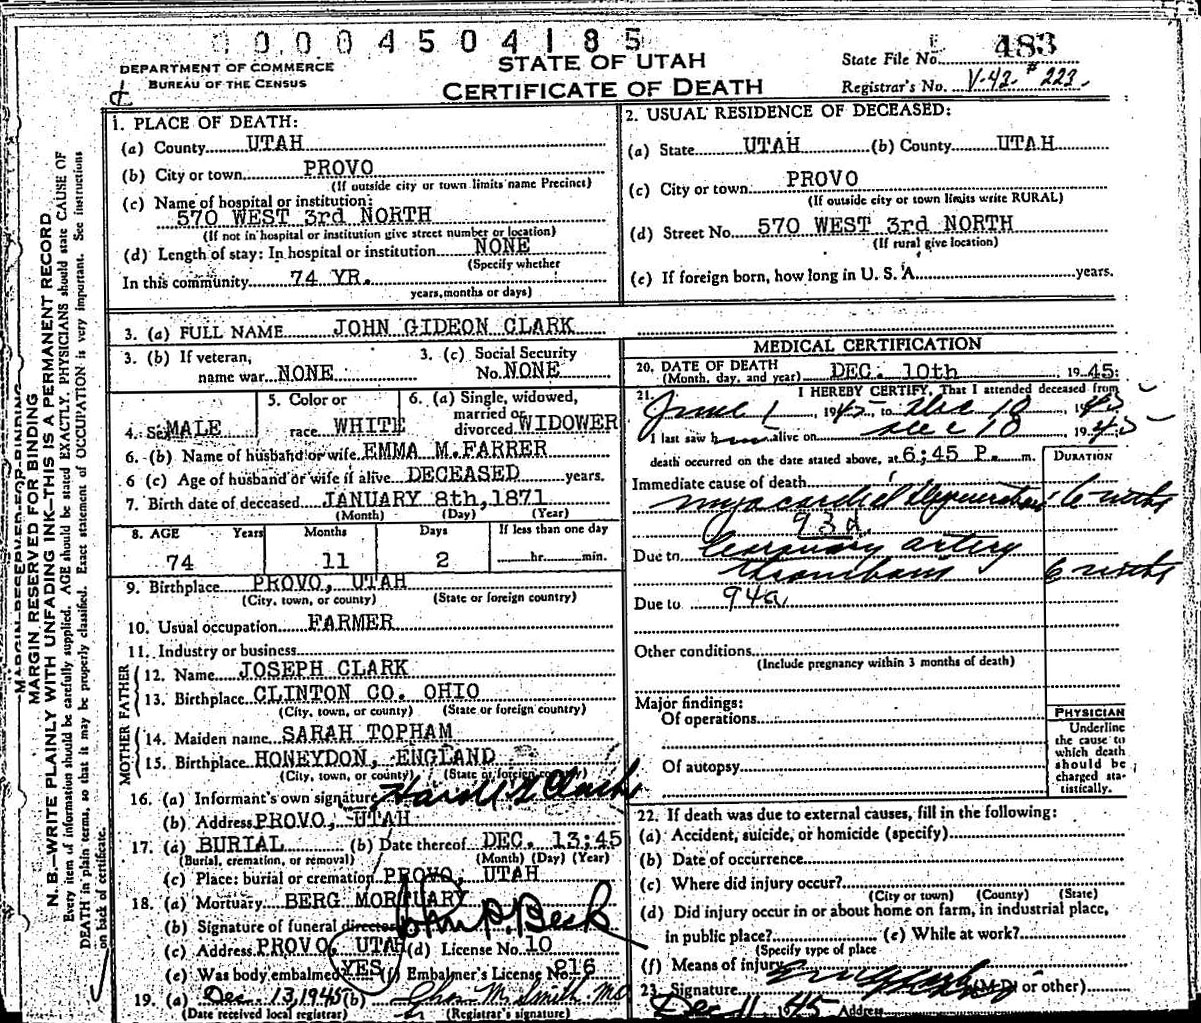 00004504185
STATE OF UTAH
CERTIFICATE OF DEATH
DEPARTMENT OF COMMERCE
BUREAU OF THE CENSUS
State File No. 483
Registrar's No. V-42-#223
MARGIN RESERVED FOR BINDING
N. B.—WRITE PLAINLY WITH UNFADING INK—THIS IS A PERMANENT RECORD
Every item of information should be carefully supplied. AGE should be stated EXACTLY. PHYSICIANS should state CAUSE OF
DEATH in plain terms, so that it may be properly classified. Exact statement of OCCUPATION is very important. See instructions
on back of certificate.
1. PLACE OF DEATH:
(a) County UTAH
(b) City or town PROVO
(If outside city or town limits name Precinct)
(c) Name of hospital or institution:
570 WEST 3rd NORTH
(If not in hospital or institution give street number or location)
(d) Length of stay: In hospital or institution NONE
(Specify whether
In this community 74 YR.
years, months or days)
2. USUAL RESIDENCE OF DECEASED:
(a) State UTAH (b) County UTAH
(c) City or town PROVO
(If outside city or town limits write RURAL)
(d) Street No. 570 WEST 3rd NORTH
(If rural give location)
(e) If foreign born, how long in U. S. A. years.
3. (a) FULL NAME JOHN GIDEON CLARK
3. (b) If veteran, name war NONE
3. (c) Social Security No. NONE
4. Sex MALE
5. Color or race WHITE
6. (a) Single, widowed, married or divorced WIDOWER
6. (b) Name of husband or wife EMMA M. FARRER
6 (c) Age of husband or wife if alive DECEASED years.
7. Birth date of deceased JANUARY 8th, 1871
(Month) (Day) (Year)
8. AGE Years Months Days If less than one day
74 11 2 hr. min.
9. Birthplace PROVO, UTAH
(City, town, or county) (State or foreign country)
10. Usual occupation FARMER
11. Industry or business
FATHER
12. Name JOSEPH CLARK
13. Birthplace CLINTON CO. OHIO
(City, town, or county) (State or foreign country)
MOTHER
14. Maiden name SARAH TOPHAM
15. Birthplace HONEYDON, ENGLAND
(City, town, or county) (State or foreign country)
16. (a) Informant's own signature Harold G Clark
(b) Address PROVO, UTAH
17. (a) BURIAL (b) Date thereof DEC. 13:45
(Burial, cremation, or removal) (Month) (Day) (Year)
(c) Place: burial or cremation PROVO, UTAH
18. (a) Mortuary BERG MORTUARY
(b) Signature of funeral director John P. Beck
(c) Address PROVO, UTAH (d) License No. 10
(e) Was body embalmed YES (f) Embalmer's License No. 216
19. (a) Dec. 13, 1945 (b) Chas M. Smith MD
(Date received local registrar) (Registrar's signature)
MEDICAL CERTIFICATION
20. DATE OF DEATH DEC. 10th 1945:
(Month, day, and year)
21. I HEREBY CERTIFY, That I attended deceased from
June 1, 1945, to Dec 10, 1945
I last saw him alive on Dec 10 1945
death occurred on the date stated above, at 6:45 P. m.
DURATION
Immediate cause of death
myocardial degeneration 6 mths
93d
Due to Coronary artery
thrombosis 6 mths
Due to 94a
Other conditions
(Include pregnancy within 3 months of death)
Major findings:
Of operations
Of autopsy
PHYSICIAN
Underline
the cause to
which death
should be
charged sta-
tistically.
22. If death was due to external causes, fill in the following:
(a) Accident, suicide, or homicide (specify)
(b) Date of occurrence
(c) Where did injury occur?
(City or town) (County) (State)
(d) Did injury occur in or about home on farm, in industrial place,
in public place? (e) While at work?
(Specify type of place
(f) Means of injury
23. Signature (M.D. or other)
Dec 11 1945 Address